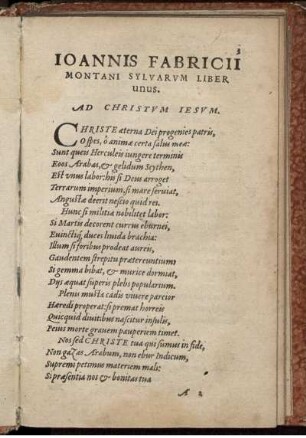 IOANNIS FABRICII
MONTANI SYLVARVM LIBER
unus.
AD CHRISTVM IESVM.
CHRISTE æterna Dei progenies patris,
Cospes, ô animæ certa salus meæ:
Sunt queis Herculeis iungere terminis
Eoos Arabas, & gelidum Scythen,
Est unus labor: his si Deus arroget
Terrarum imperium, si mare serviat,
Angusta deerit nescio quid rei.
Hunc si militia nobilitet labor:
Si Martie decorent currus eburnei,
Euinctiq; duces liuida brachia:
Illum si foribus prodeat aureis,
Gaudentem strepitu prætereuntium:
Si gemma bibat, & murice dormiat,
Dijs æquat superis plebs popularium.
Plenus multa cadis vivere parcior
Hæredi properat: si premat horreis
Quicquid diuitibus nascitur insulis,
Peius morte grauem pauperiem timet.
Nos sed CHRISTE tua qui sumus in fide,
Non gazas Arabum, non ebur Indicum,
Supremo petimus materiem mali:
Si præsentia nos & bonitas tua
A 2